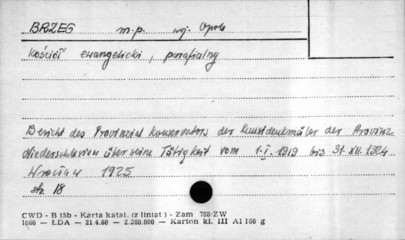 BRZEG m.p. woj. Opole
Kościół ewangelicki, parafialny
Bericht des Provinzial Konservators der Kunstdenkmäler der Provinz
Niederschlesien über seine Tätigkeit vom 1.I.1919 bis 31.XII.1924
Wrocław 1925
str. 18
CWD - B 15b - Karta katal. (z liniat) - Zam 788/ZW
1666 — ŁDA — 21.4.60 — 2.250.000 — Karton kl. III A1 160 g